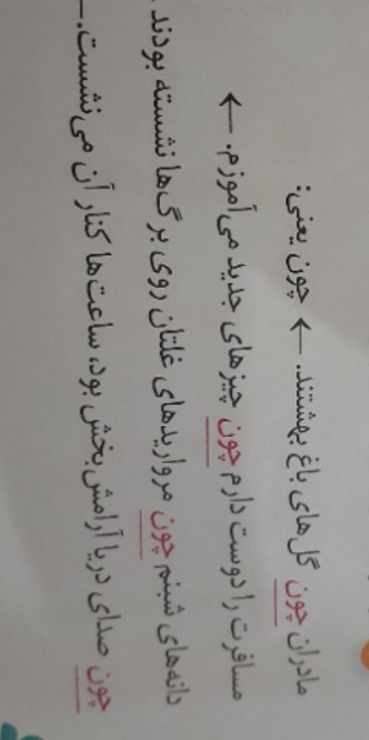 مادران چون گل‌های باغ بهشتند. ← چون یعنی:
مسافرت را دوست دارم چون چیزهای جدید می‌آموزم. ←
دانه‌های شبنم چون مرواریدهای غلتان روی برگ‌ها نشسته بودند.
چون صدای دریا آرامش‌بخش بود، ساعت‌ها کنار آن می‌نشست.